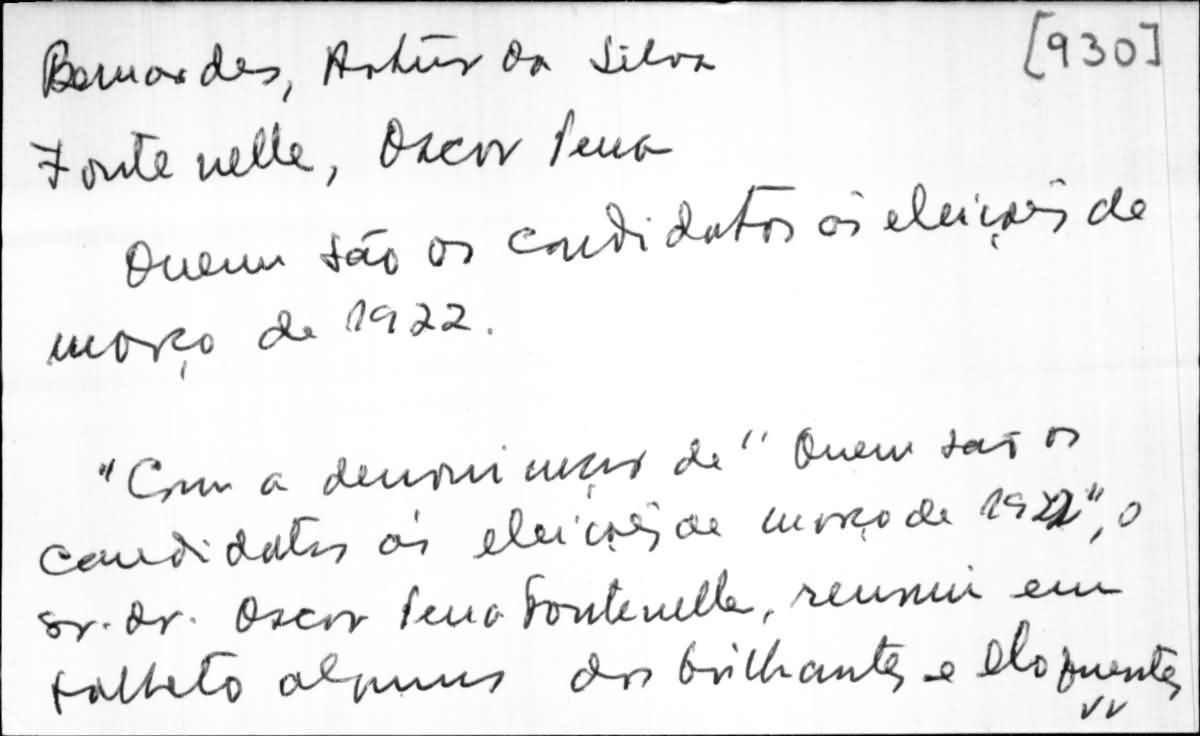 Bernardes, Artur da Silva [930]
Fontenelle, Oscar Pena
Quem são os candidatos às eleições de
março de 1922.
"Com a denominação de "Quem são os
candidatos às eleições de março de 1922", o
sr. dr. Oscar Pena Fontenelle, reuniu em
folheto alguns dos brilhantes e eloquentes
vv